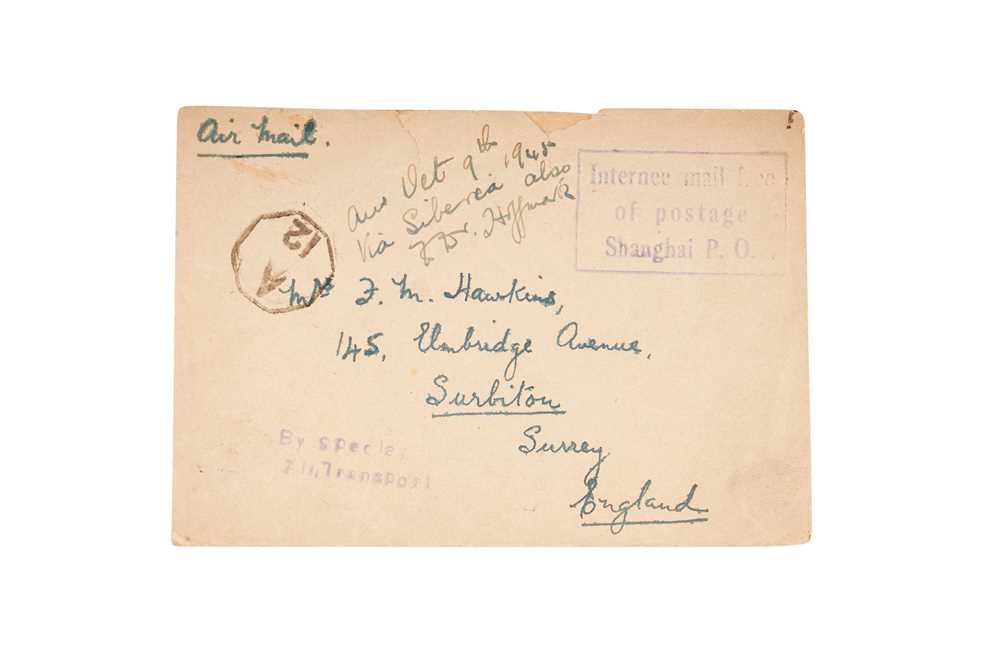 Air Mail.
Oct 9th 1945
Via Siberia also
Dr.
Internee mail free
of postage
Shanghai P. O.
12
A
Mrs F. M. Hawkins,
145, Elmbridge Avenue,
Surbiton
Surrey
England
By special
Air Transport